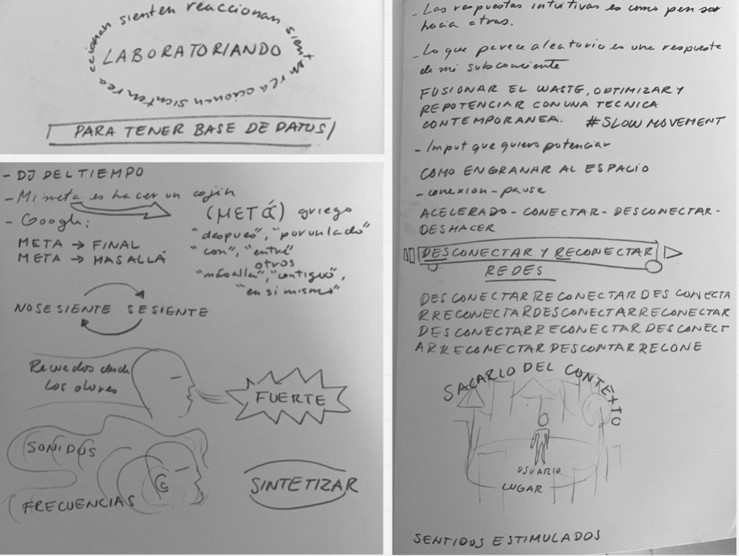 sienten reaccionan sienten reaccionan sienten reaccionan
LABORATORIANDO
PARA TENER BASE DE DATOS
- DJ DEL TIEMPO
- Mi meta es hacer un cojin
- Google:
META → FINAL
META → MAS ALLÁ
(METÁ) griego
"después", "por un lado"
"con", "entre
otros
"más allá", "contiguo",
"en si mismo"
NO SE SIENTE SE SIENTE
desde
los olores
FUERTE
SONIDOS
FRECUENCIAS
SINTETIZAR
- Las respuestas intuitivas es como pensar
hacia atras.
- Lo que parece aleatorio es una respuesta
de mi subconciente
FUSIONAR EL WASTE, OPTIMIZAR Y
REPOTENCIAR CON UNA TECNICA
CONTEMPORANEA. #SLOW MOVEMENT
- Imput que quiero potenciar
COMO ENGRANAR AL ESPACIO
- conexion - pause
ACELERADO - CONECTAR - DESCONECTAR -
DESHACER
DESCONECTAR Y RECONECTAR
REDES
DESCONECTAR RECONECTAR DES CONECTA
R RECONECTAR DESCONECTAR RECONECTAR
DESCONECTAR RECONECTAR DESCONECT
AR RECONECTAR DESCONTAR RECONE
SACARLO DEL CONTEXTO
USUARIO
LUGAR
SENTIDOS ESTIMULADOS